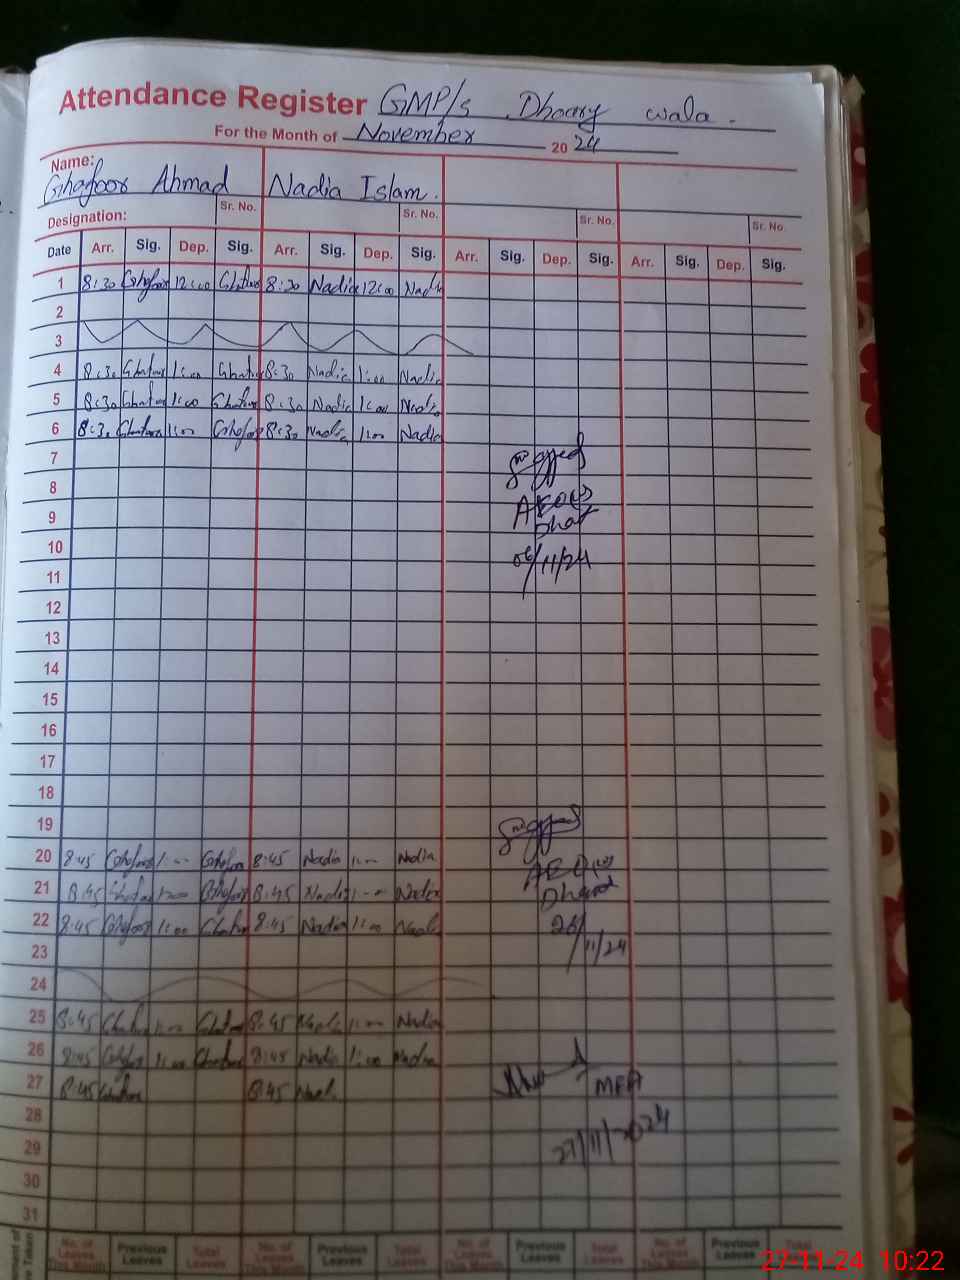 Attendance Register GMP/s Dhoary wala.
For the Month of November 2024
Name:
Ghafoor Ahmad Nadia Islam.
Sr. No. Sr. No. Sr. No. Sr. No.
Designation:
Date Arr. Sig. Dep. Sig. Arr. Sig. Dep. Sig. Arr. Sig. Dep. Sig. Arr. Sig. Dep. Sig.
1 8:30 Ghafoor 12:00 Ghafoor 8:30 Nadia 12:00 Nadia
2
3
4 8:30 Ghafoor 1:00 Ghafoor 8:30 Nadia 1:00 Nadia
5 8:30 Ghafoor 1:00 Ghafoor 8:30 Nadia 1:00 Nadia
6 8:30 Ghafoor 1:00 Ghafoor 8:30 Nadia 1:00 Nadia
7
8
9
10 06/11/24
11
12
13
14
15
16
17
18
19
20 8:45 Ghafoor 1:00 Ghafoor 8:45 Nadia 1:00 Nadia
21 8:45 Ghafoor 1:00 Ghafoor 8:45 Nadia 1:00 Nadia
22 8:45 Ghafoor 1:00 Ghafoor 8:45 Nadia 1:00 Nadia
23 /11/24
24
25 8:45 Ghafoor 1:00 Ghafoor 8:45 Nadia 1:00 Nadia
26 8:45 Ghafoor 1:00 Ghafoor 8:45 Nadia 1:00 Nadia
27 8:45 Ghafoor 8:45 Nadia MEA
28
29 27/11/2024
30
31
No. of Leaves This Month Previous Leaves Total Leaves No. of Leaves This Month Previous Leaves Total Leaves No. of Leaves This Month Previous Leaves Total Leaves No. of Leaves This Month Previous Leaves Total
27-11-24 10:22